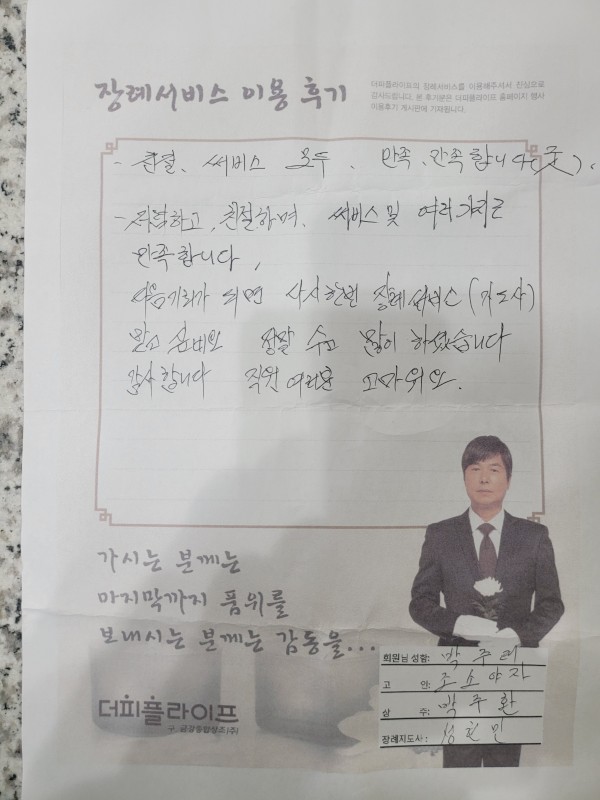 장례서비스 이용 후기
더피플라이프의 장례서비스를 이용해주셔서 진심으로
감사드립니다. 본 후기분은 더피플라이프 홈페이지 행사
이용후기 게시판에 기재됩니다.
- 친절, 써비스 모두, 만족, 만족합니다
- 친절하며, 써비스 및 여러가지로
만족합니다,
다음기회가 되면 다시한번 장례써비스 (지도사)
받고 정말 수고 많이 하셨습니다
감사합니다 직원여러분 고마워요.
가시는 분께는
마지막까지 품위를
보내시는 분께는 감동을...
회원님 성함: 박주례
고 인: 조소야자
상 주: 박주환
장례지도사: 성현민
더피플라이프
구. 금강종합상조(주)